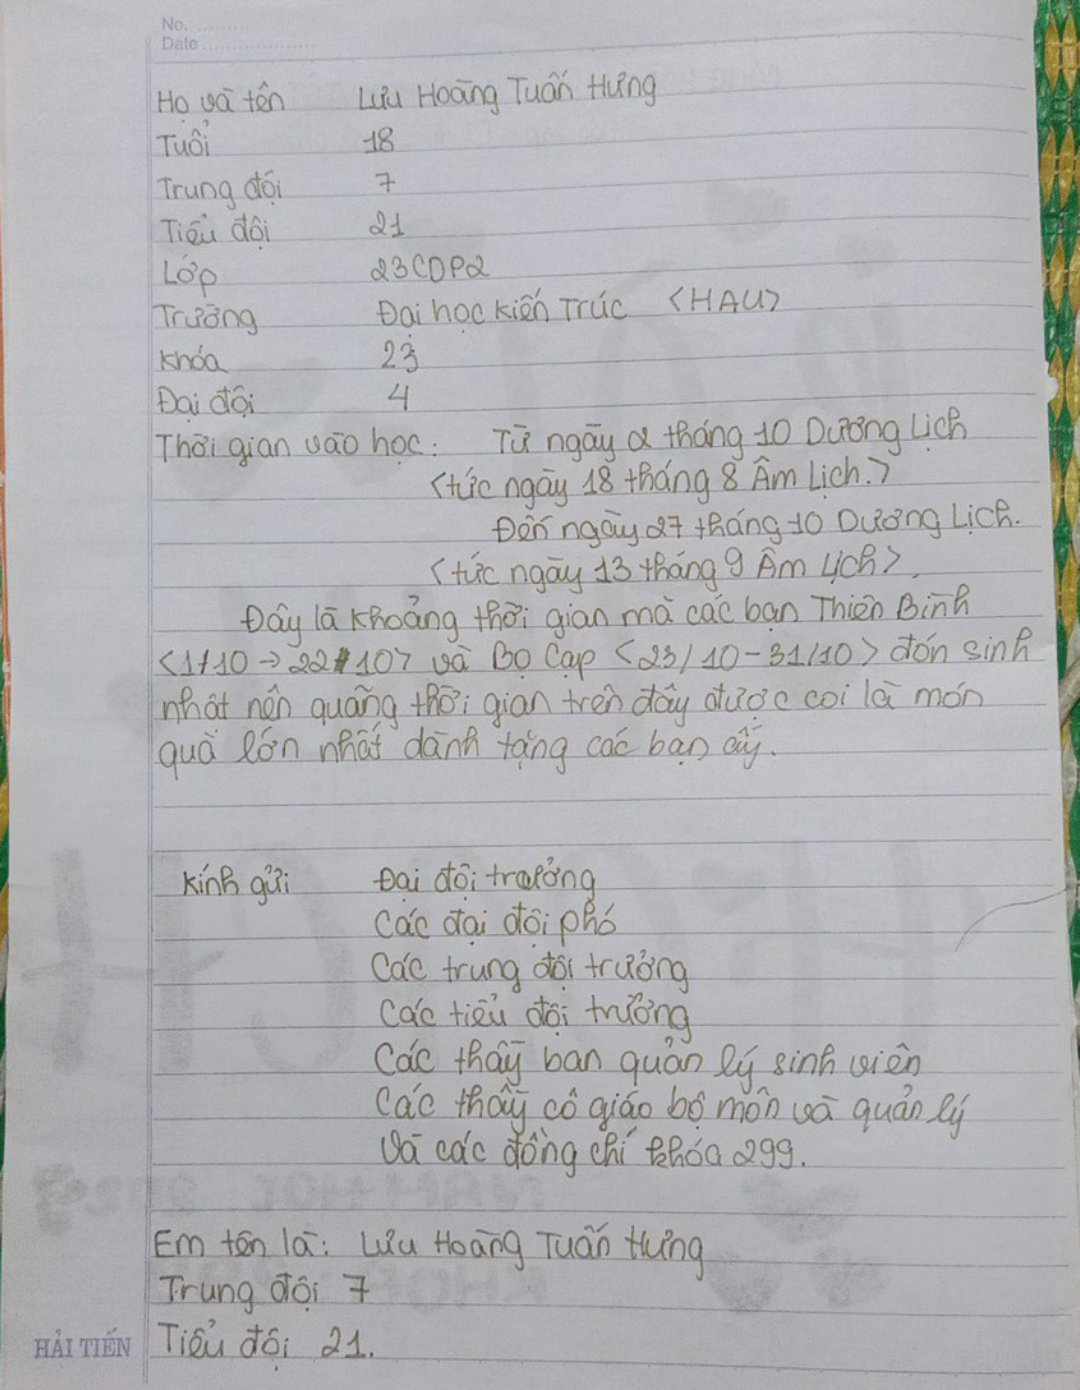 No. ............
Date .....................
Họ và tên Lưu Hoàng Tuấn Hưng
Tuổi 18
Trung đội 7
Tiểu đội 21
Lớp 23CDP2
Trường Đại học Kiến Trúc <HAU>
Khóa 23
Đại đội 4
Thời gian vào học: Từ ngày 2 tháng 10 Dương Lịch
<tức ngày 18 tháng 8 Âm Lịch.>
Đến ngày 27 tháng 10 Dương Lịch.
<tức ngày 13 tháng 9 Âm Lịch>.
Đây là khoảng thời gian mà các bạn Thiên Bình
<1/10 → 22/10> và Bọ Cạp <23/10 - 31/10> đón sinh
nhật nên quãng thời gian trên đây được coi là món
quà lớn nhất dành tặng các bạn ấy.
Kính gửi Đại đội trưởng
Các đại đội phó
Các trung đội trưởng
Các tiểu đội trưởng
Các thầy ban quản lý sinh viên
Các thầy cô giáo bộ môn và quản lý
Và các đồng chí khóa 299.
Em tên là: Lưu Hoàng Tuấn Hưng
Trung đội 7
Tiểu đội 21.
HẢI TIẾN